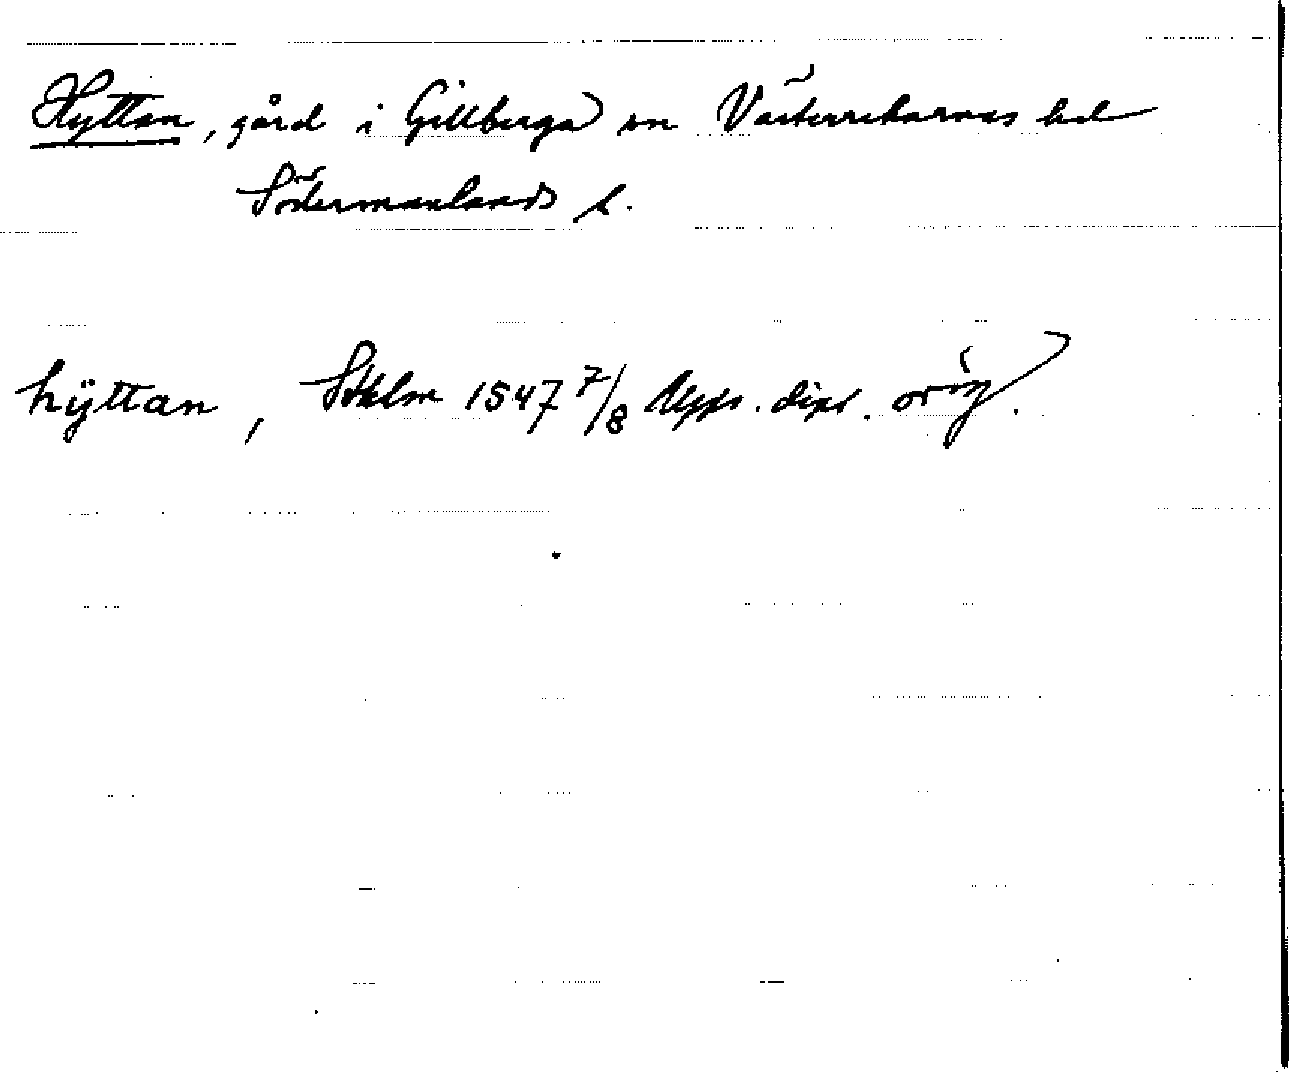 Hyttan, gård i Gillberga sn Västerrekarnas hd
Södermanlands l.
hÿttan, Sthlm 1547 7/8 Upps. dipl. orig.